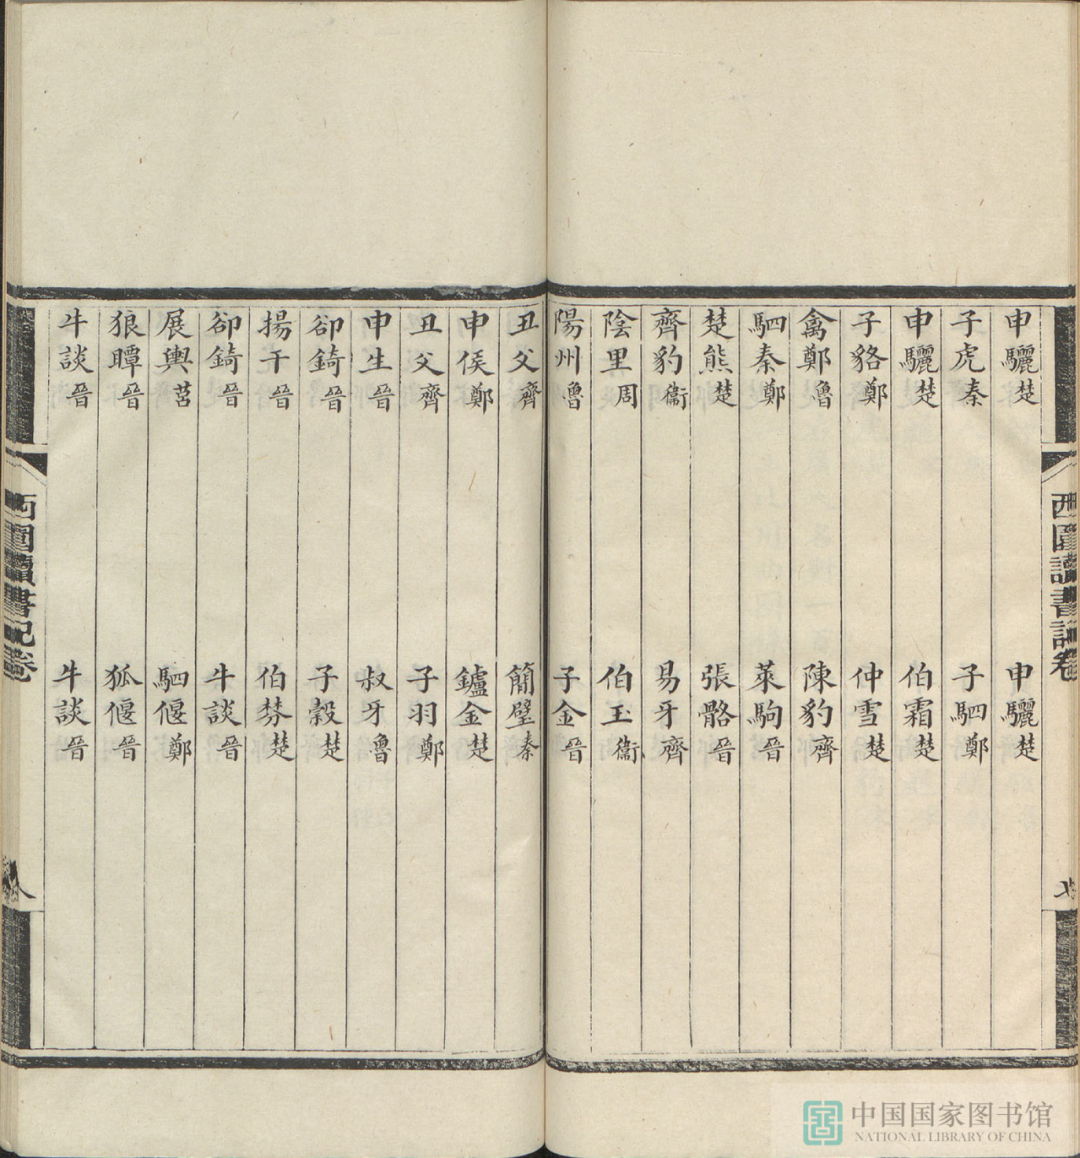 西圃讀書記卷
申驪楚 申驪楚
子虎秦 子駟鄭
申驪楚 伯霜楚
子貉鄭 仲雪楚
禽鄭魯 陳豹齊
駟秦鄭 萊駒晉
楚熊楚 張骼晉
齊豹衞 易牙齊
陰里周 伯玉衞
陽州魯 子金晉
丑父齊 簡璧秦
申侯鄭 鑪金楚
丑父齊 子羽鄭
申生晉 叔牙魯
卻錡晉 子穀楚
揚干晉 伯棼楚
卻錡晉 牛談晉
展輿莒 駟偃鄭
狼瞫晉 狐偃晉
牛談晉 牛談晉
西圃讀書記卷
八
中国国家图书馆
NATIONAL LIBRARY OF CHINA